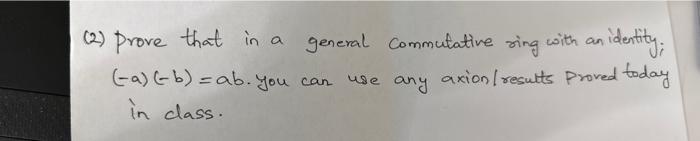 (2) prove that in a general commutative ring with an identity;
(-a)(-b) = ab. You can use any axion/results proved today
in class.